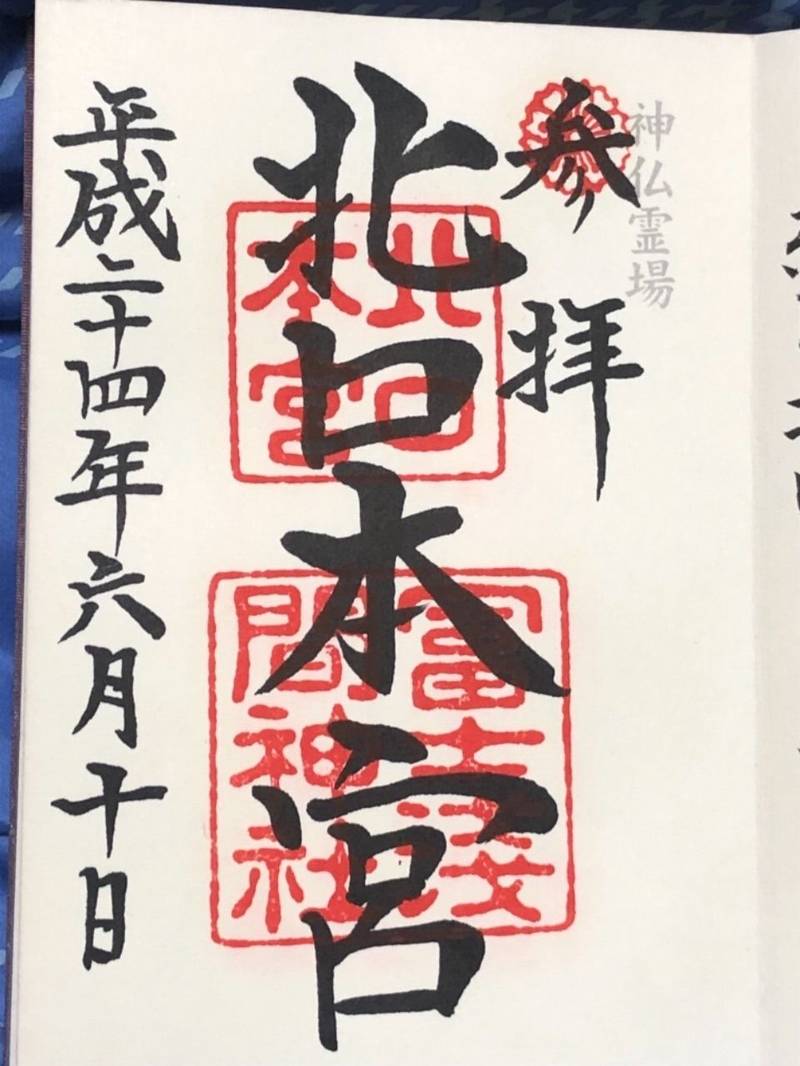 神仏霊場
参拝
北口本宮
北口
本宮
冨士浅
間神社
平成二十四年六月十日